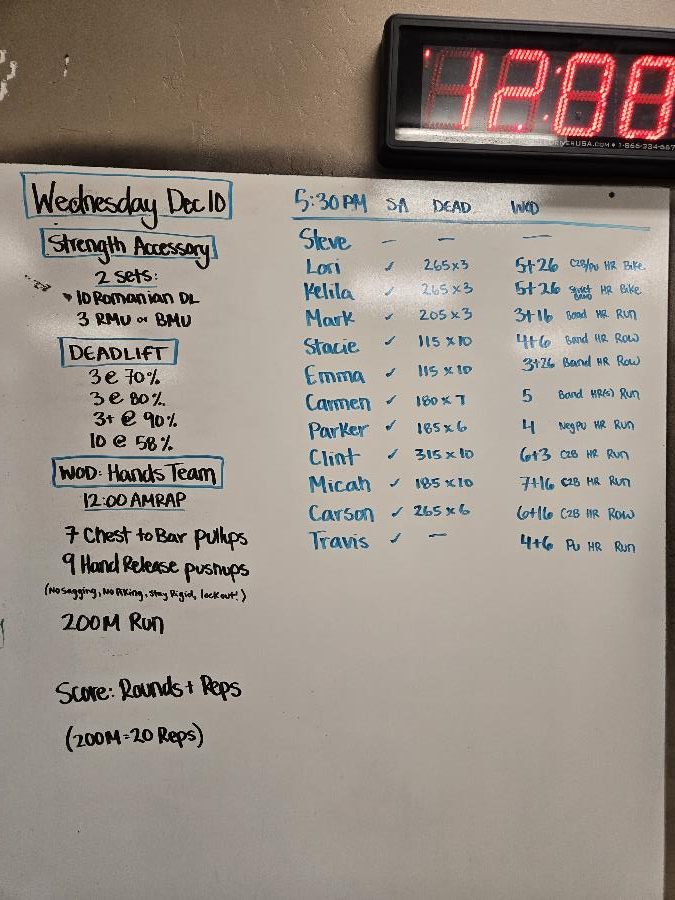 12:00
1-866-334-667
Wednesday Dec 10
Strength Accessory
2 sets:
10 Romanian DL
3 RMU or BMU
DEADLIFT
3 @ 70%
3 @ 80%
3+ @ 90%
10 @ 58%
WOD: Hands Team
12:00 AMRAP
7 Chest to Bar pullups
9 Hand Release pushups
(No sagging, No Piking, Stay Rigid, lockout!)
200M Run
Score: Rounds + Reps
(200M=20 Reps)
5:30 PM SA DEAD WOD
Steve — — —
Lori ✓ 265x3 5+26 C2B/PU HR Bike
Kelila ✓ 265x3 5+26 Strict Band HR Bike
Mark ✓ 205x3 3+16 Band HR Run
Stacie ✓ 115x10 4+6 Band HR Row
Emma ✓ 115x10 3+26 Band HR Row
Carmen ✓ 180x7 5 Band HR(s) Run
Parker ✓ 185x6 4 Neg PU HR Run
Clint ✓ 315x10 6+3 C2B HR Run
Micah ✓ 185x10 7+16 C2B HR Run
Carson ✓ 265x6 6+16 C2B HR Row
Travis ✓ — 4+6 PU HR Run